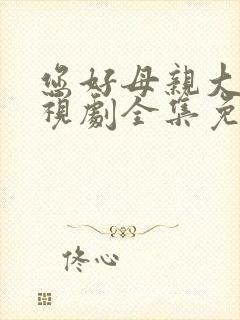 您好母親大
視劇全集免
佟心